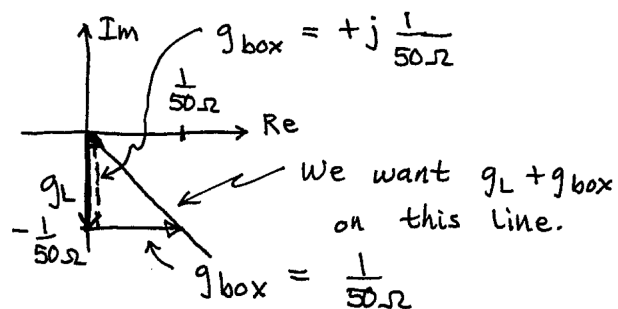 Im
g_box = +j 1/50Ω
1/50Ω
Re
g_L
We want g_L + g_box
on this line.
-1/50Ω
g_box = 1/50Ω